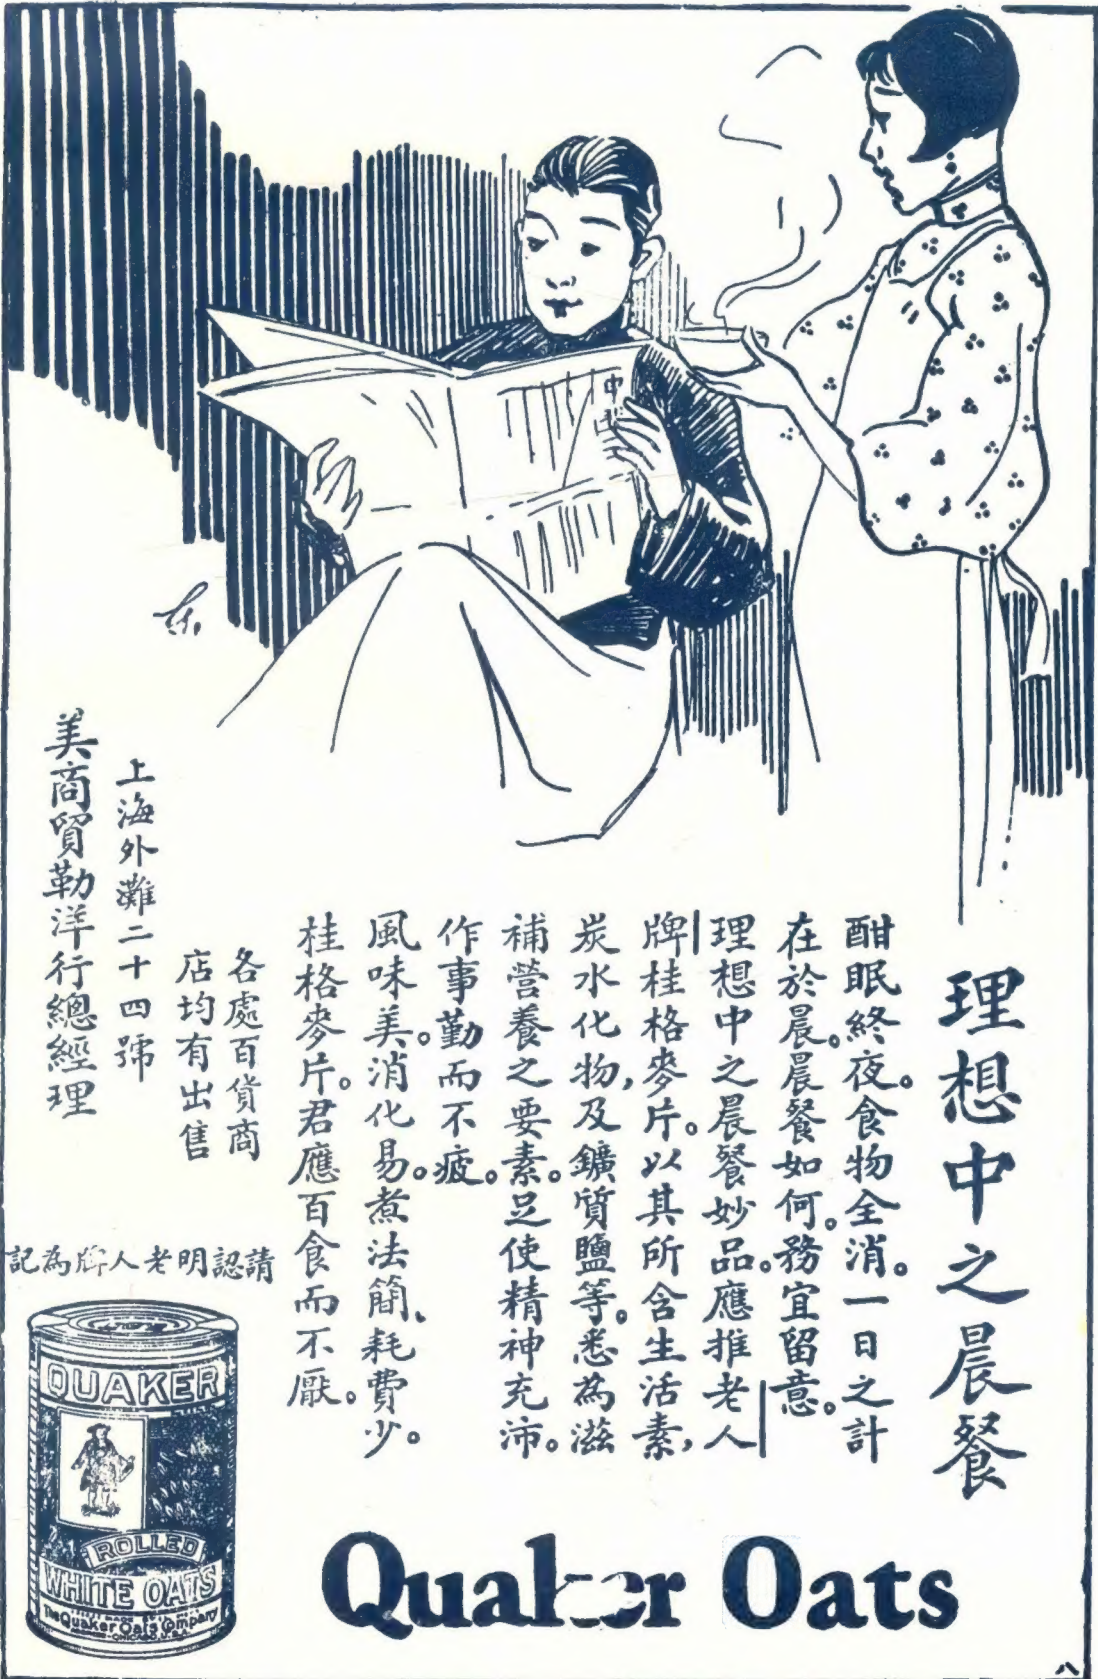 中
理想中之晨餐
酣眠終夜。食物全消。一日之計
在於晨。晨餐如何。務宜留意。
理想中之晨餐妙品。應推老人
牌桂格麥片。以其所含生活素,
炭水化物,及鑛質鹽等。悉為滋
補營養之要素。足使精神充沛。
作事勤而不疲。
風味美。消化易。煮法簡、耗費少。
桂格麥片。君應百食而不厭。
各處百貨商
店均有出售
上海外灘二十四號
美商貿勒洋行總經理
請認明老人牌為記
QUAKER
ROLLED
WHITE OATS
The Quaker Oats Company
Quaker Oats
八